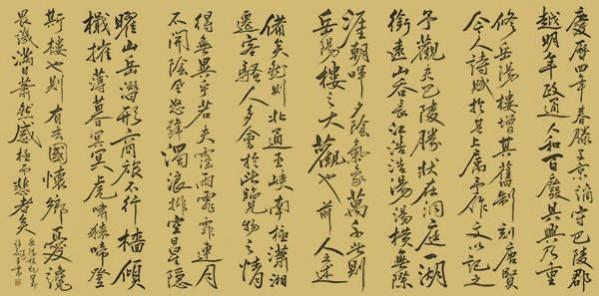 慶曆四年春滕子京謫守巴陵郡
越明年政通人和百廢具興乃重
修岳陽樓增其舊制刻唐賢
今人詩賦於其上屬予作文以記之
予觀夫巴陵勝狀在洞庭一湖
銜遠山吞長江浩浩湯湯橫無際
涯朝暉夕陰氣象萬千此則
岳陽樓之大觀也前人之述
備矣然則北通巫峽南極瀟湘
遷客騷人多會於此覽物之情
得無異乎若夫霪雨霏霏連月
不開陰風怒號濁浪排空日星隱
曜山岳潛形商旅不行檣傾
檝摧薄暮冥冥虎嘯猿啼登
斯樓也則有去國懷鄉憂讒
畏譏滿目蕭然感極而悲者矣
岳陽樓記節